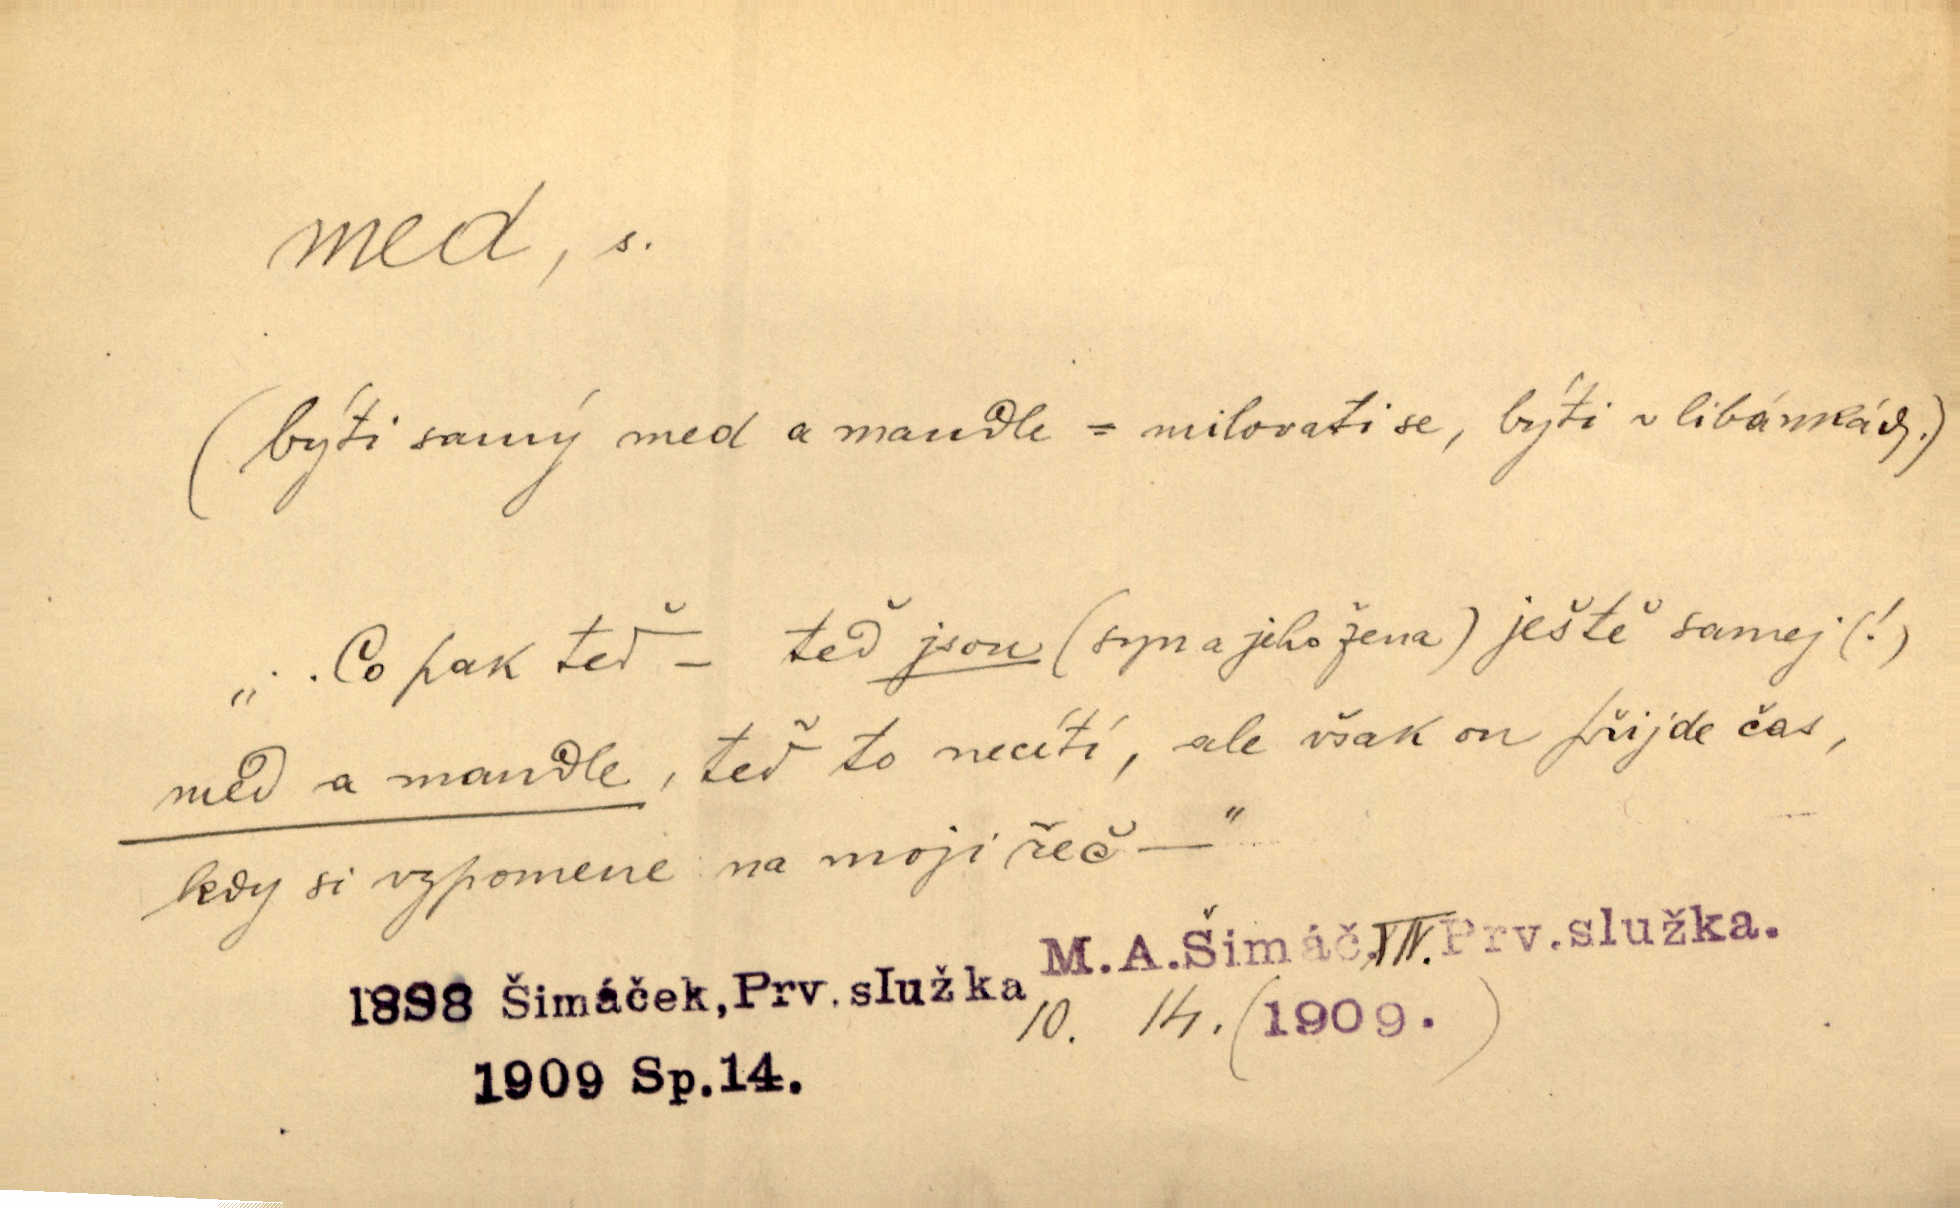 med, s.
(býti samý med a mandle = milovati se, býti v libánkách.)
„. . Co pak teď – teď jsou (syn a jeho žena) ještě samej (!)
med a mandle, teď to necítí, ale však on přijde čas,
kdy si vzpomene na moji řeč —"
M.A.Šimáč. IV. Prv.služka.
1898 Šimáček,Prv.služka
10. 14. (1909.)
1909 Sp.14.